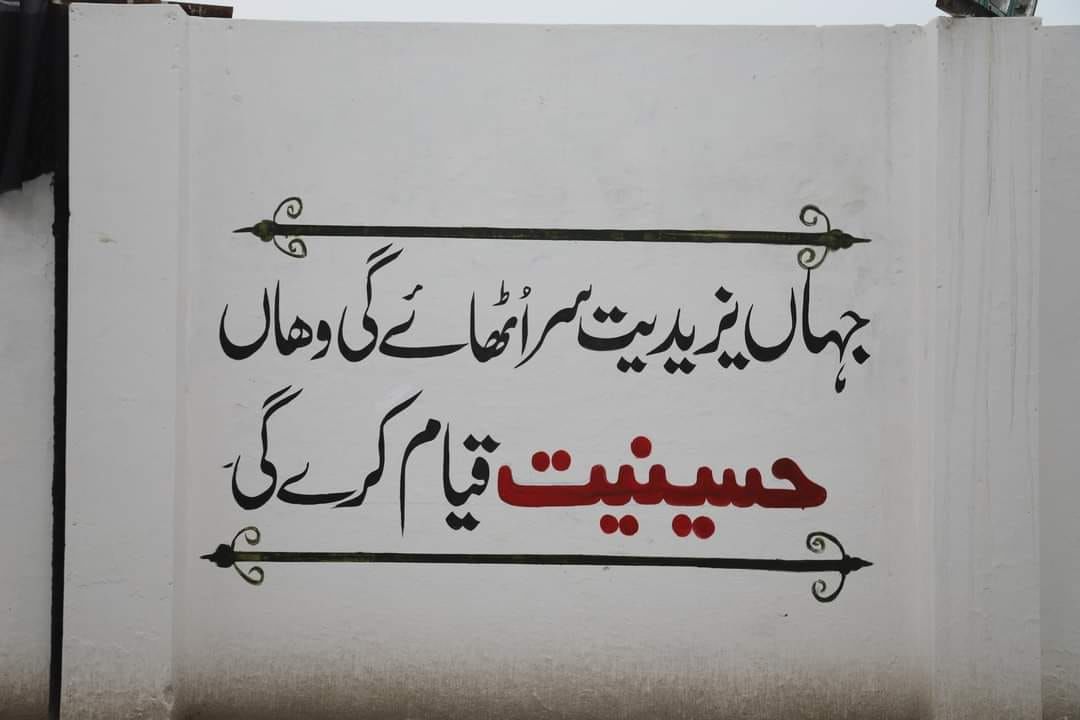 جہاں یزیدیت سر اُٹھائے گی وھاں
حسینیت قیام کرے گی۔